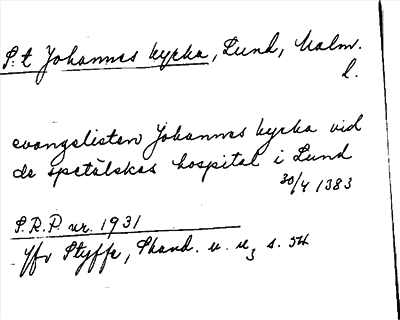 S:t Johannes kyrka, Lund, Malm.
l.
evangelisten Johannes kyrka vid
de spetälskas hospital i Lund
30/4 1383
S.R.P. nr. 1931
Jfr Styffe, Skand. u. u, s. 54